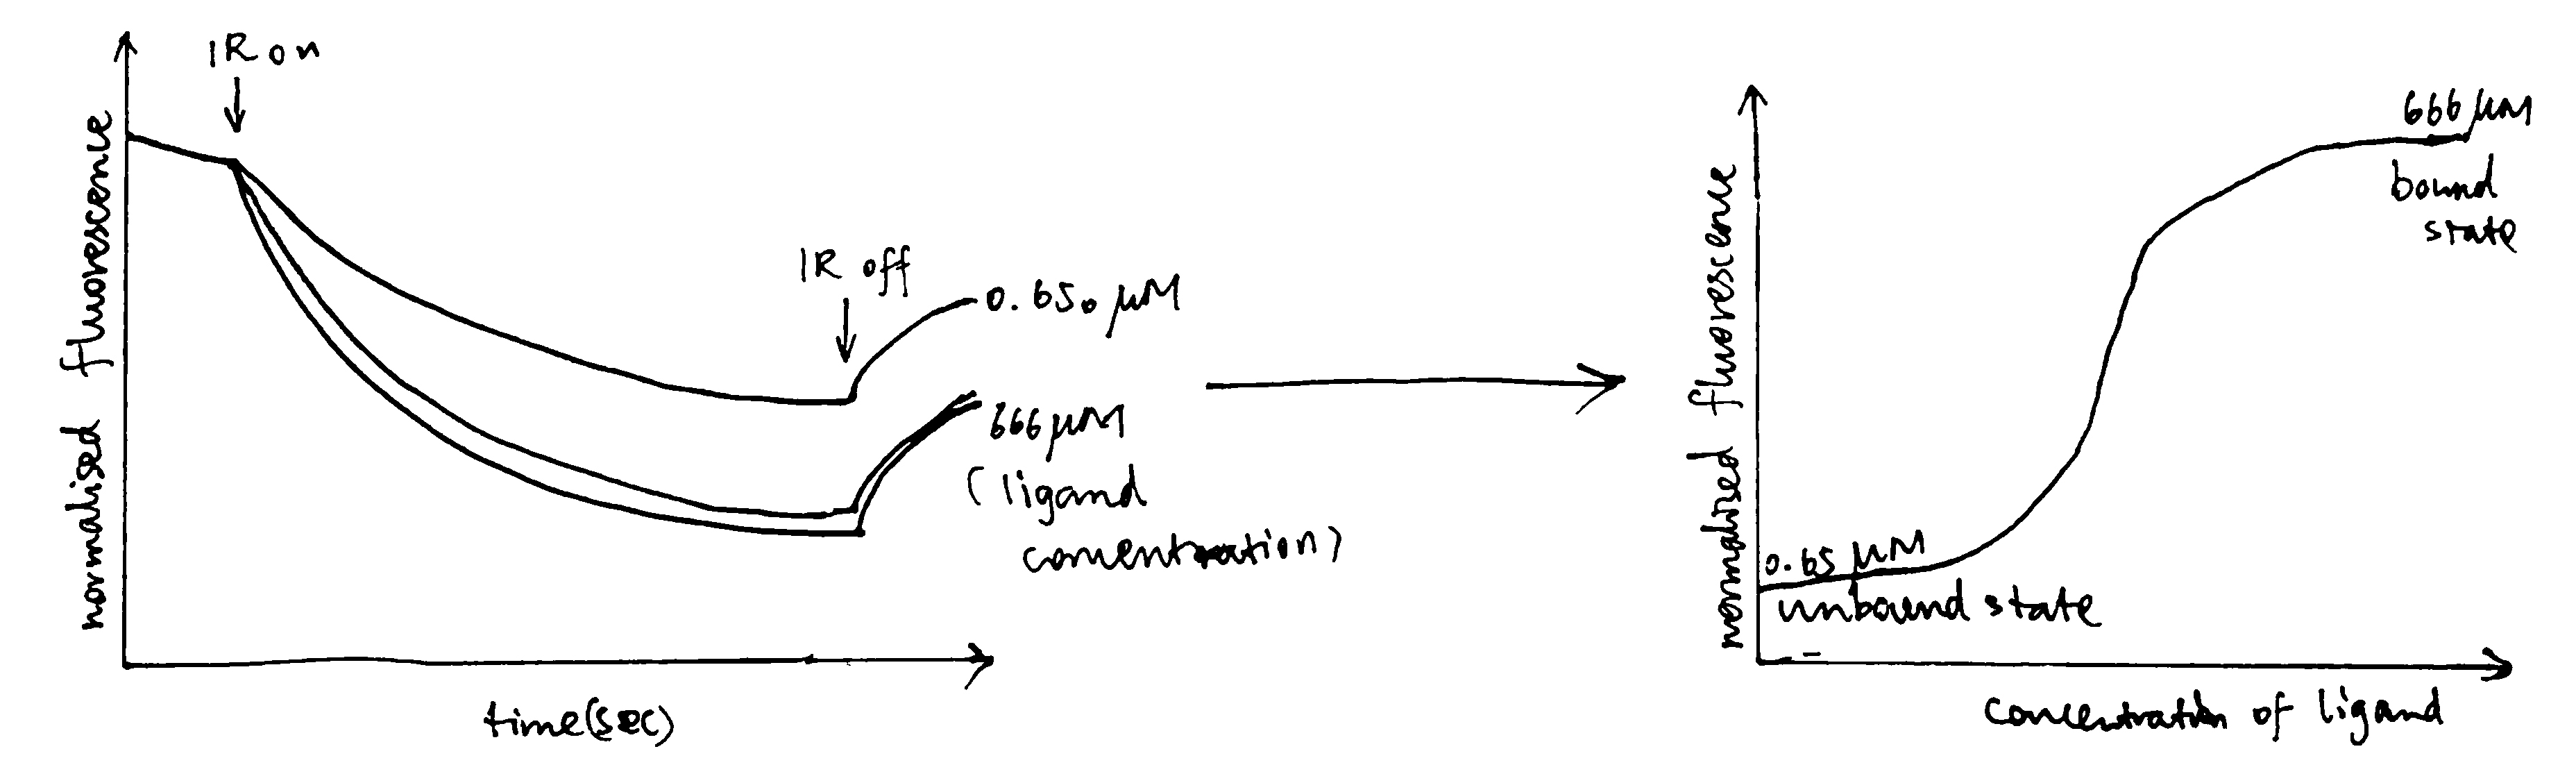 IR on
normalised fluorescence
IR off
0.650 μM
666 μM
(ligand
concentration)
time(sec)
normalised fluorescence
666 μM
bound
state
0.65 μM
unbound state
concentration of ligand